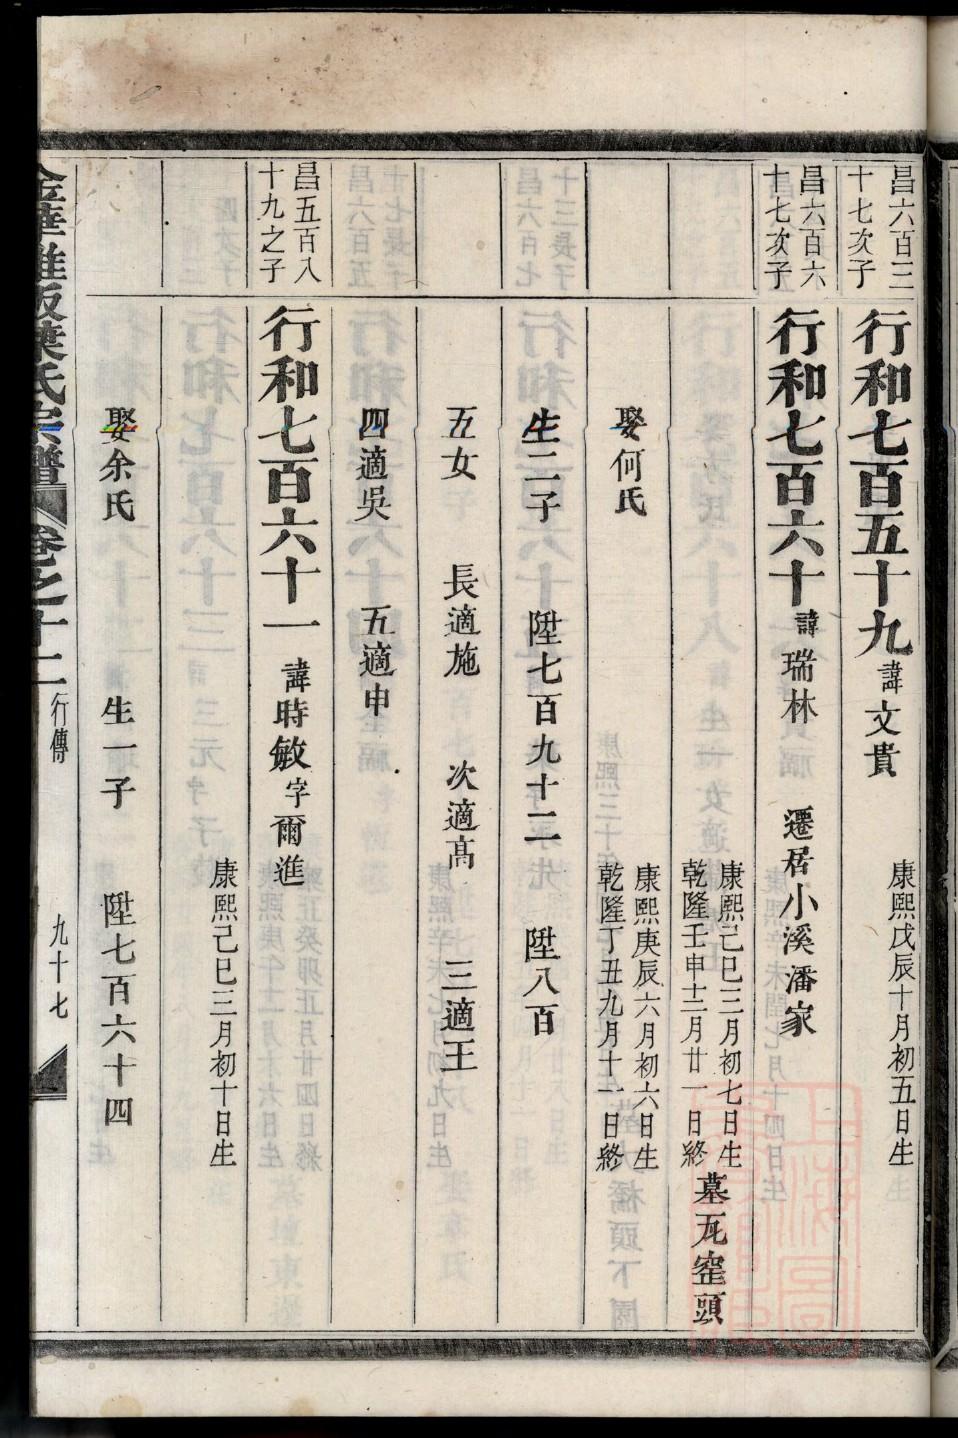 昌六百三
十七次子
行和七百五十九 諱文貴
康熙戊辰十月初五日生
昌六百六
十七次子
行和七百六十 諱瑞林 遷居小溪潘家
康熙己巳三月初七日生
乾隆壬申十二月廿一日終
墓瓦窑頭
娶何氏
康熙庚辰六月初六日生
乾隆丁丑九月十一日終
生二子 陞七百九十二 陞八百
五女 長適施 次適高 三適王
四適吳 五適申
昌五百八
十九之子
行和七百六十一 諱時敏字爾進
康熙己巳三月初十日生
娶余氏 生一子 陞七百六十四
葉氏宗譜 卷之十二 行傳 九十七